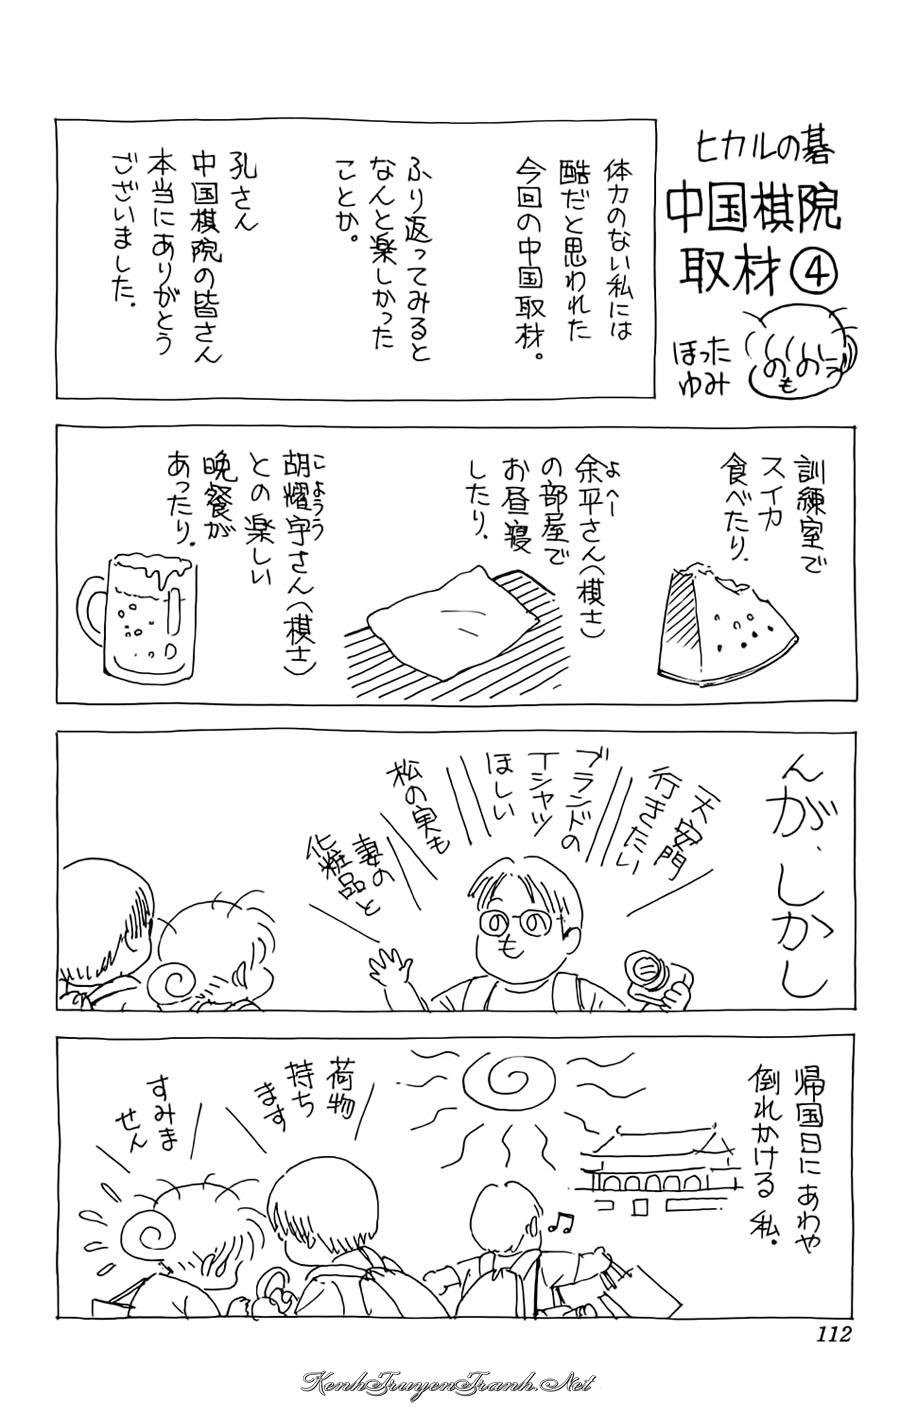 ヒカルの碁
中国棋院
取材④
ほった
ゆみ
体力のない私には
酷だと思われた
今回の中国取材。
ふり返ってみると
なんと楽しかった
ことか。
孔さん
中国棋院の皆さん
本当にありがとう
ございました。
訓練室で
スイカ
食べたり、
よへー
余平さん(棋士)
の部屋で
お昼寝
したり、
こようう
胡耀宇さん(棋士)
との楽しい
晩餐が
あったり。
んが、しかし
天安門
行きたい
ブランドの
Tシャツ
ほしい
松の実も
妻の
化粧品と
帰国日にあわや
倒れかける私。
荷物
持ち
ます
すみま
せん
112
KenhTruyenTranh.Net